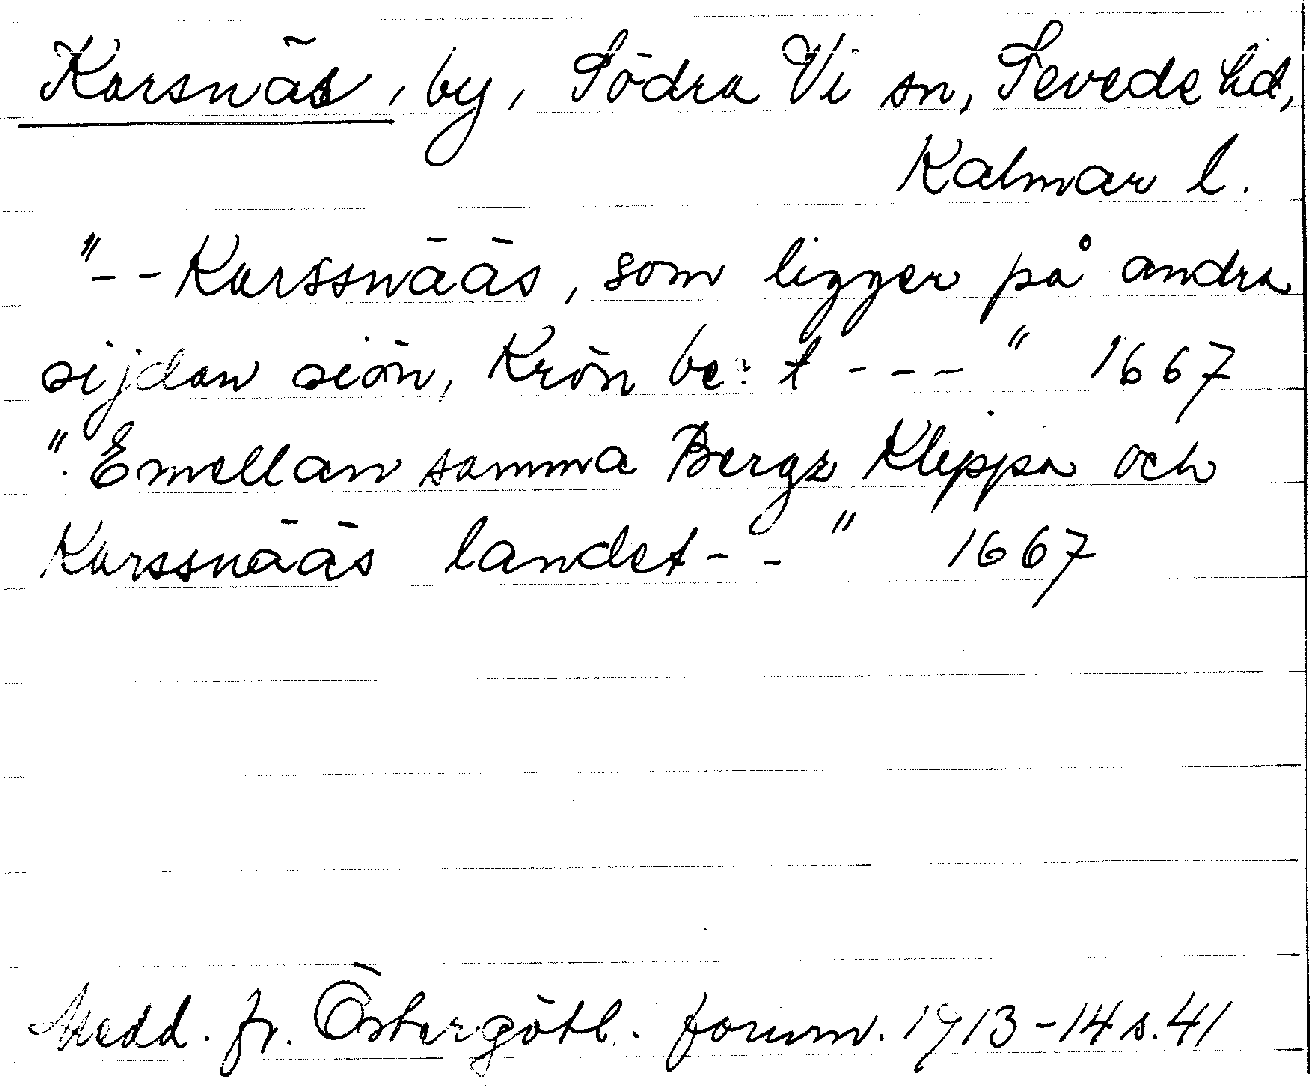 Karsnäs, by, Södra Vi sn, Sevede hd,
Kalmar l.
"-- Karssnääs, som ligger på andra
sijdan siön, Krön be: t --- " 1667
". Emellan samma Bergz Klippa och
Karssnääs landet -- " 1667
Medd. fr. Östergötl. fornm. 1913-14 s. 41